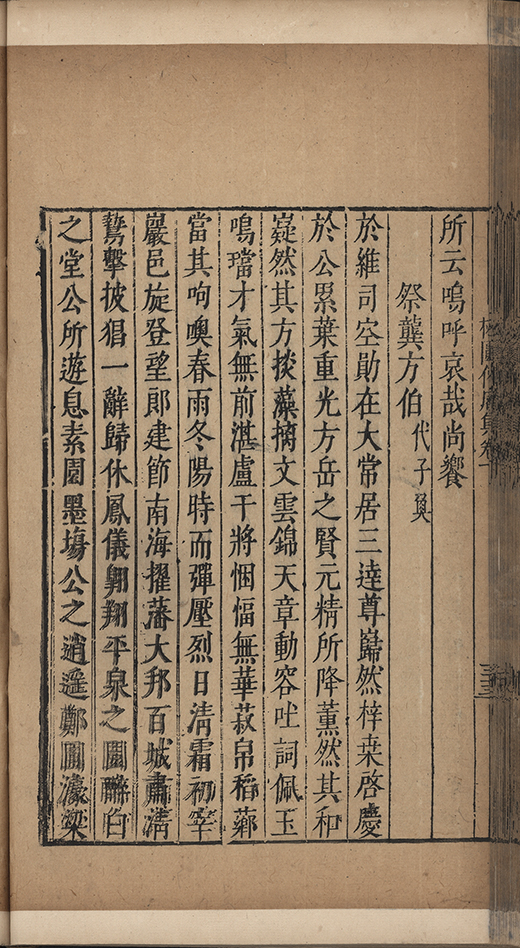 卷十
所云嗚呼哀哉尚饗
祭龔方伯代子巽
於維司空勛在大常居三達尊巋然梓桒啓慶
於公累葉重光方岳之賢元精所降薰然其和
嶷然其方掞藻摛文雲錦天章動容吐詞佩玉
鳴璫才氣無前湛盧干將悃愊無華菽帛稻薌
當其呴噢春雨冬陽時而彈壓烈日清霜初宰
巖邑旋登望郎建節南海擢藩大邦百城肅清
鷙擊披猖一辭歸休鳳儀翱翔平泉之圃醉白
之堂公所遊息素園墨塲公之逍遥鄭圃濠梁